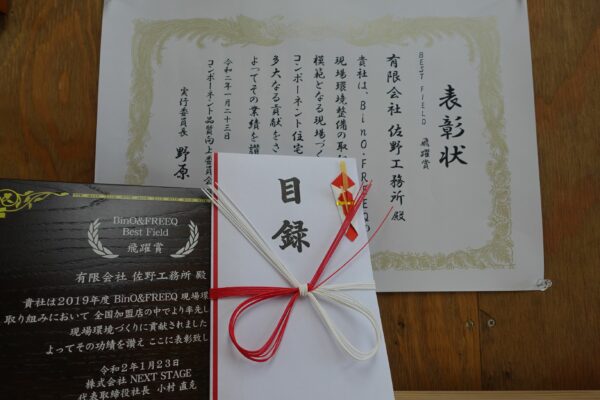 表彰状
BEST FIELD 飛躍賞
有限会社 佐野工務所 殿
貴社は、BinO・FREEQの
現場環境整備の取
模範となる現場づく
コンポーネント住宅
多大なる貢献をさ
よってその業績を讃
令和二年一月二十三日
コンポーネント品質向上委員会
実行委員長 野原
目録
BinO&FREEQ
Best Field
飛躍賞
有限会社 佐野工務所 殿
貴社は2019年度 BinO&FREEQ 現場環
取り組みにおいて 全国加盟店の中でより率先し
現場環境づくりに貢献されました
よってその功績を讃え ここに表彰致し
令和2年1月23日
株式会社 NEXT STAGE
代表取締役社長 小村 直克